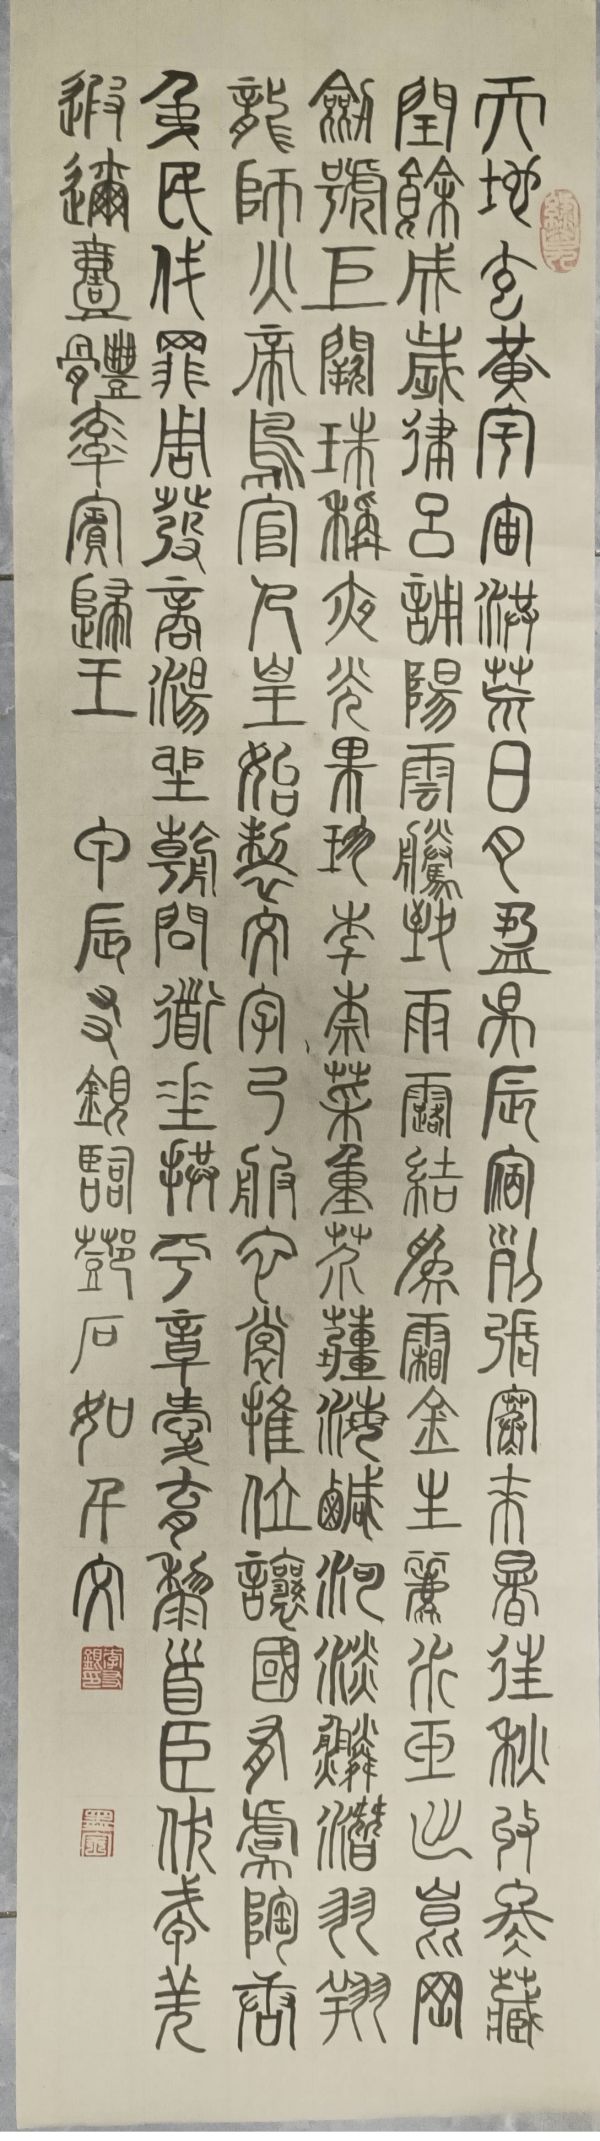 天地玄黃宇宙洪荒日月盈昃辰宿列張寒來暑往秋收冬藏
閏餘成歲律呂調陽雲騰致雨露結為霜金生麗水玉出崑岡
劍號巨闕珠稱夜光果珍李柰菜重芥薑海鹹河淡鱗潛羽翔
龍師火帝鳥官人皇始製文字乃服衣裳推位讓國有虞陶唐
弔民伐罪周發商湯坐朝問道垂拱平章愛育黎首臣伏戎羌
遐邇壹體率賓歸王 甲辰友銀臨鄧石如千文
李友銀印